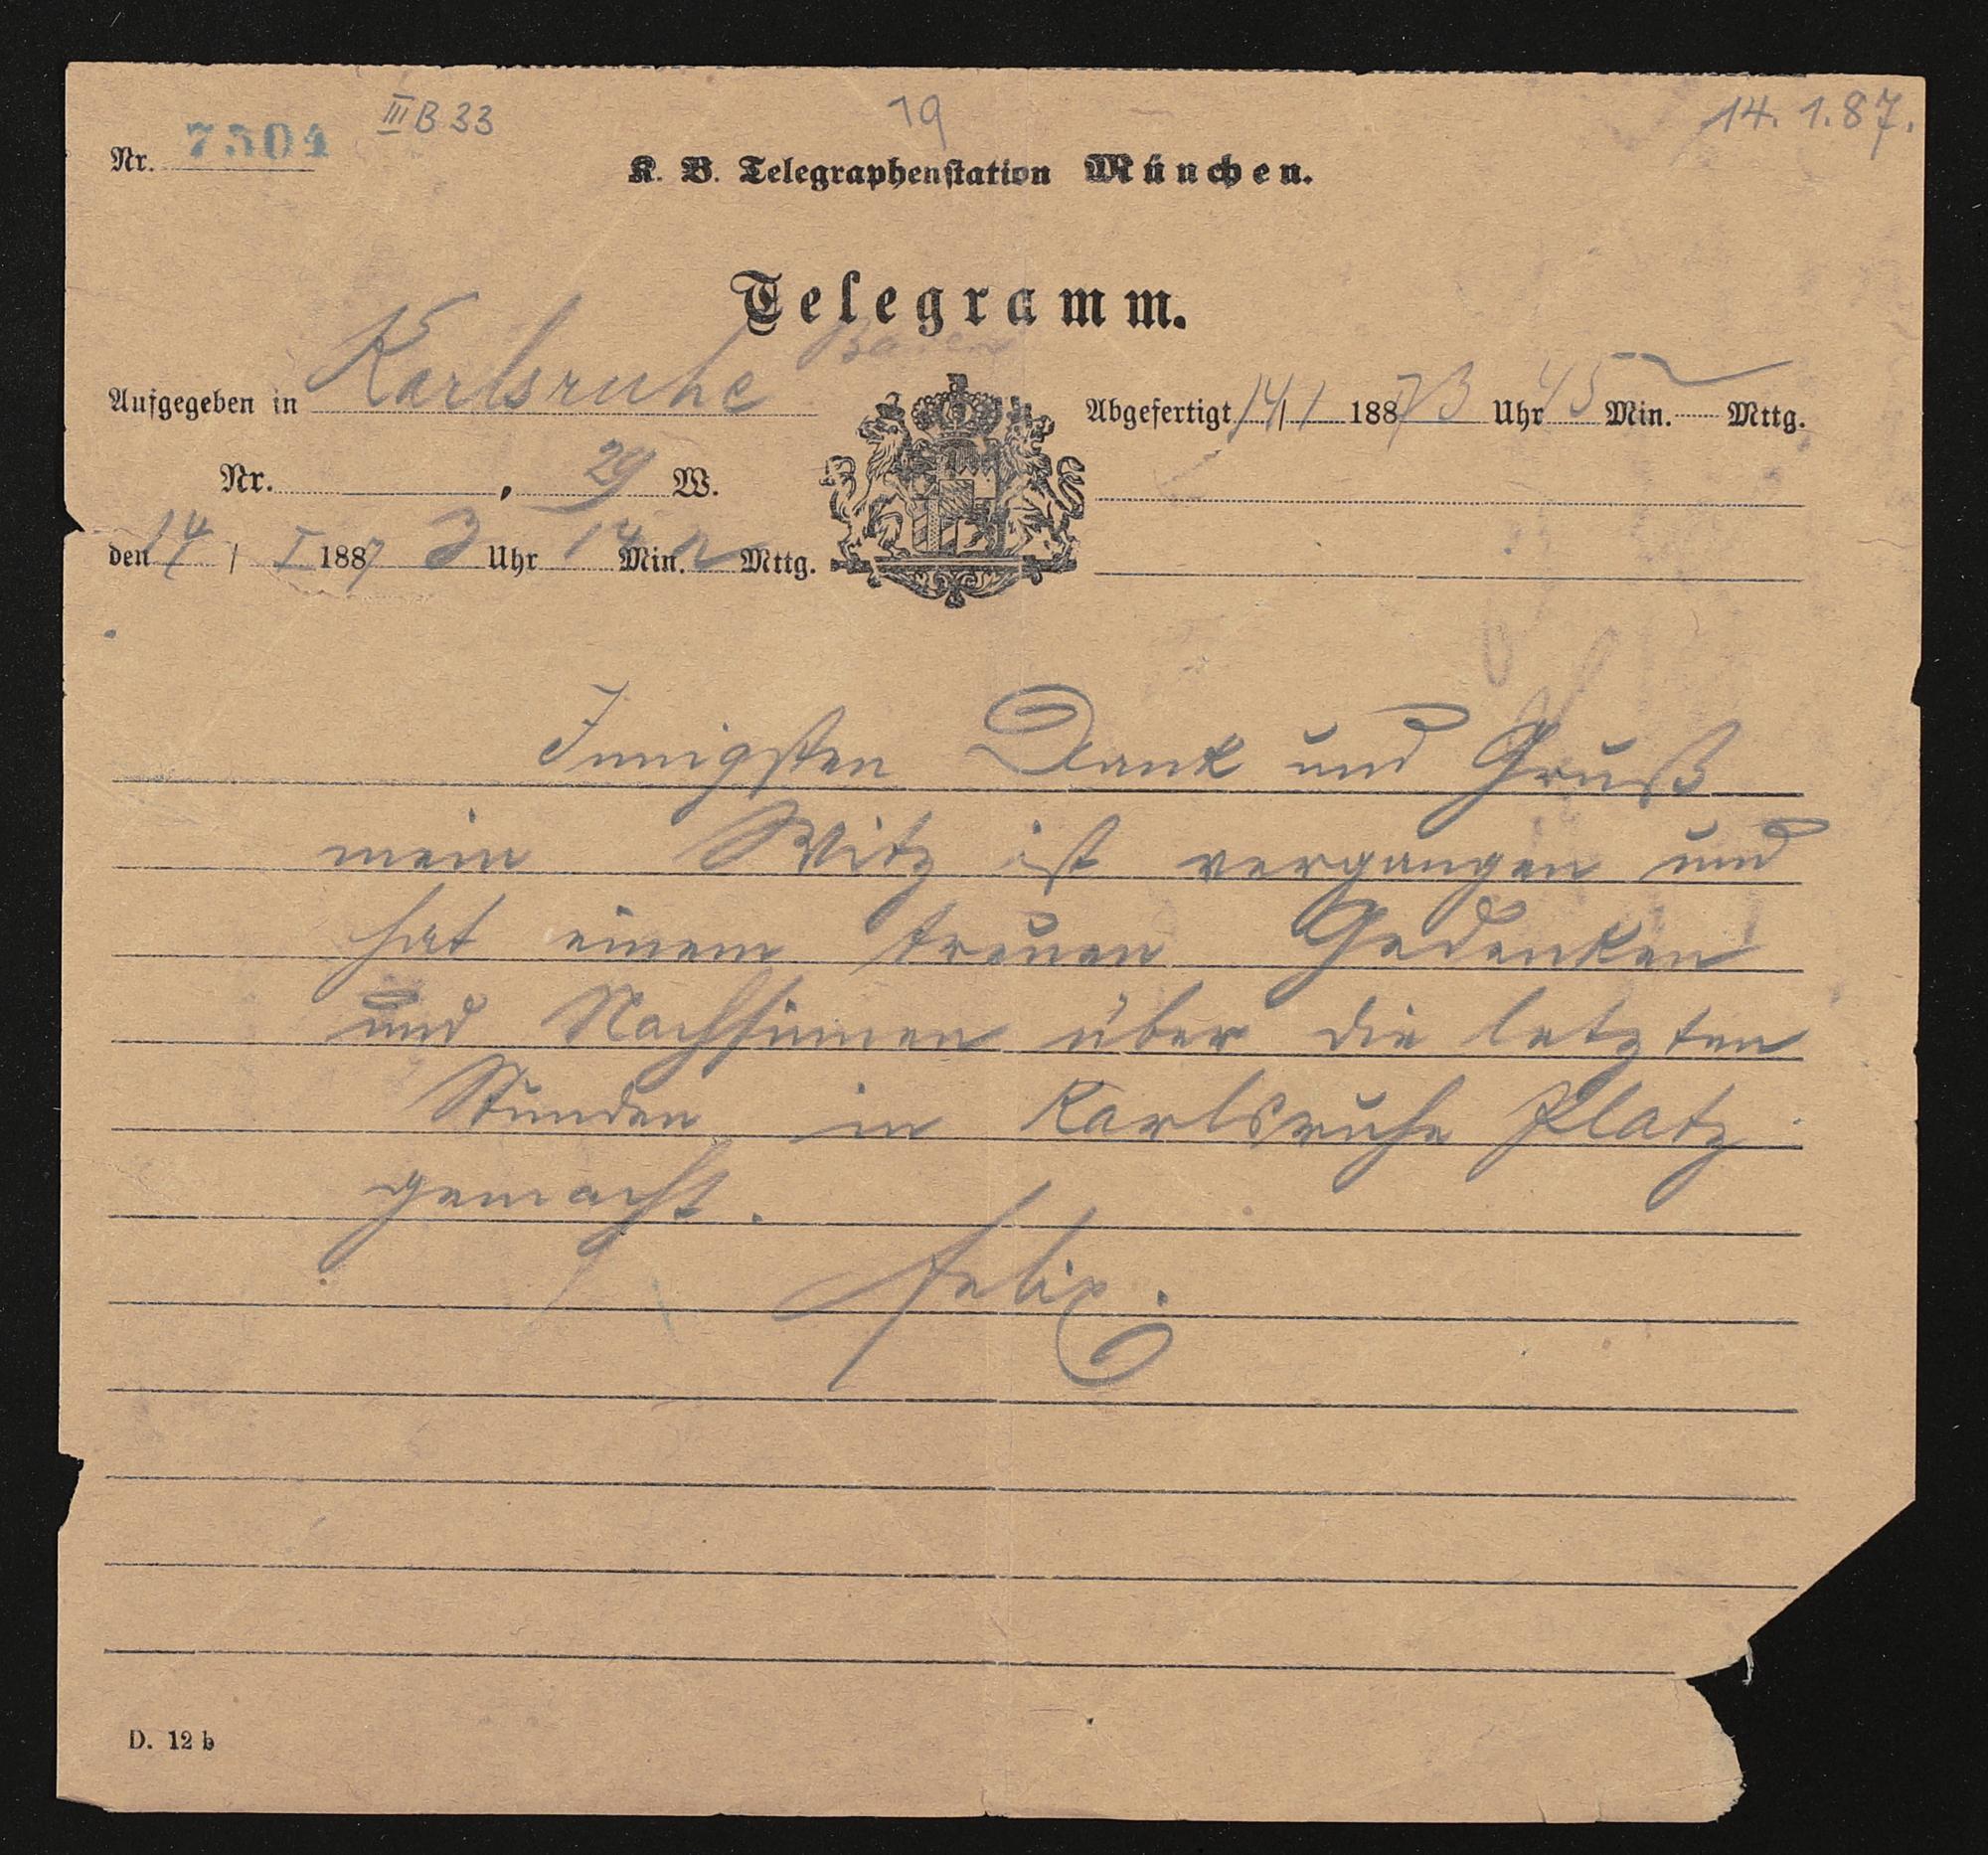 III B 33
19
14. 1. 87.
Nr. 7504
K. B. Telegraphenstation München.
Telegramm.
Baden
Aufgegeben in Karlsruhe
Abgefertigt 14/1 1887 3 Uhr 45 Min. Mttg.
Nr. , 29 W.
den 14 / I 1887 3 Uhr 14 Min. N Mttg.
Innigsten Dank und Gruß
mein Witz ist vergangen und
hat einem treuen Gedenken
und Nachsinnen über die letzten
Stunden in Karlsruhe Platz
gemacht.
Felix.
D. 12 b